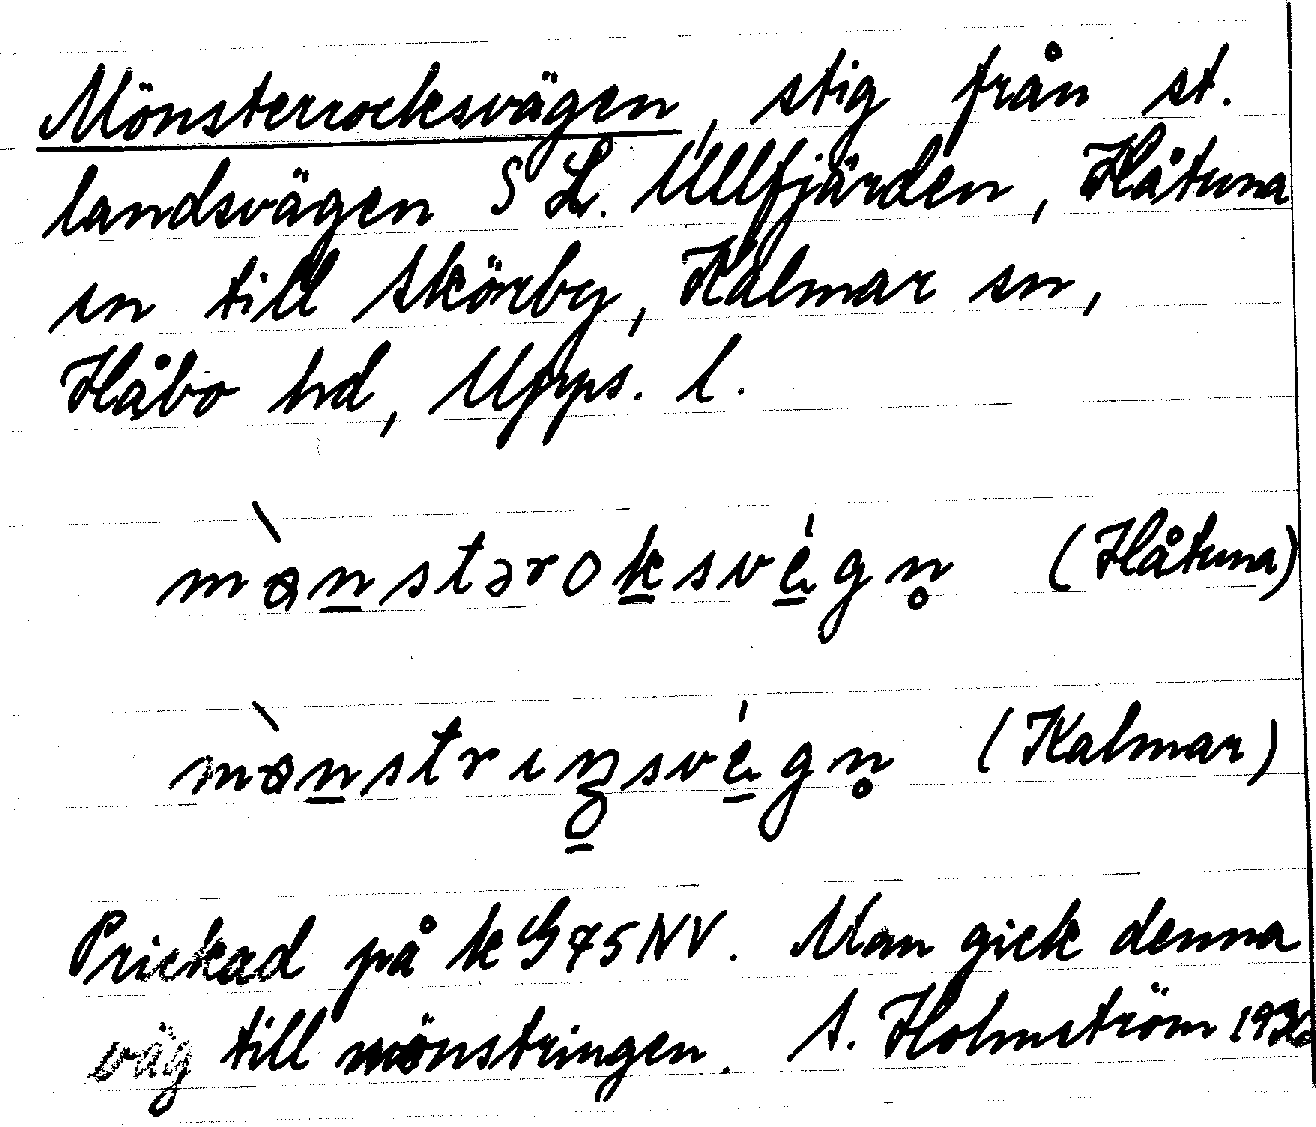 Mönsterrocksvägen, stig från st.
landsvägen S L. Ullfjärden, Håtuna
sn till Skörby, Kalmar sn,
Håbo hd, Upps. l.
mànstəroksvégn̥ (Håtuna)
mànstrıŋsvégn̥ (Kalmar)
Prickad på k G 45 NV. Man gick denna
väg till mönstringen. S. Holmström